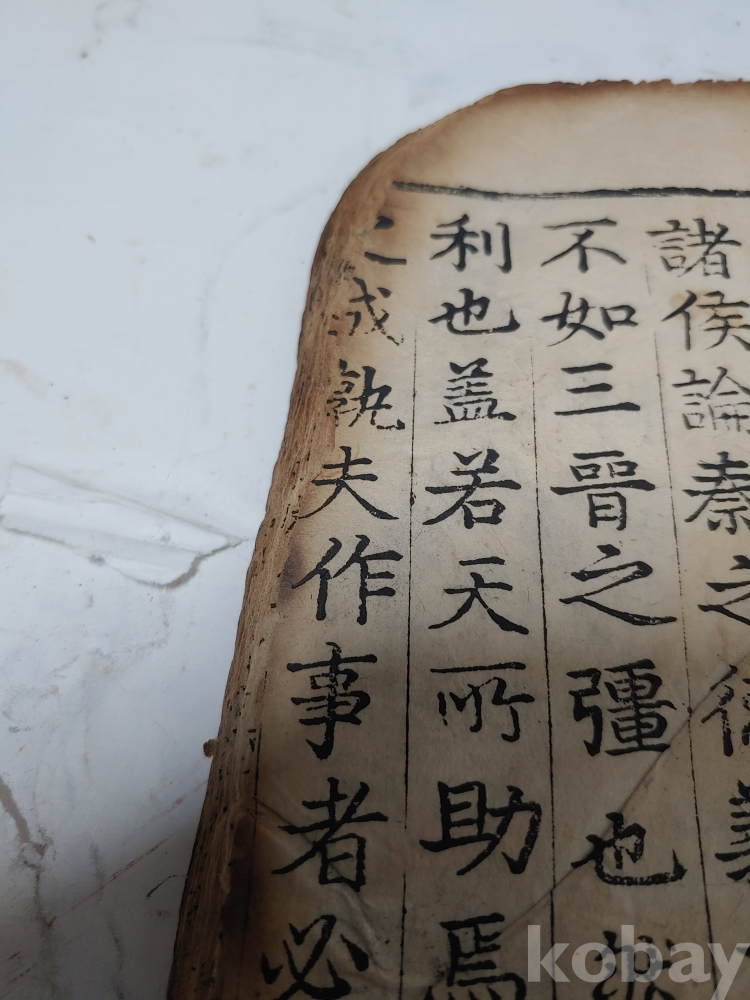 諸侯論秦之德義
不如三晉之彊也然
利也盖若天所助焉
之成孰夫作事者必
kobay